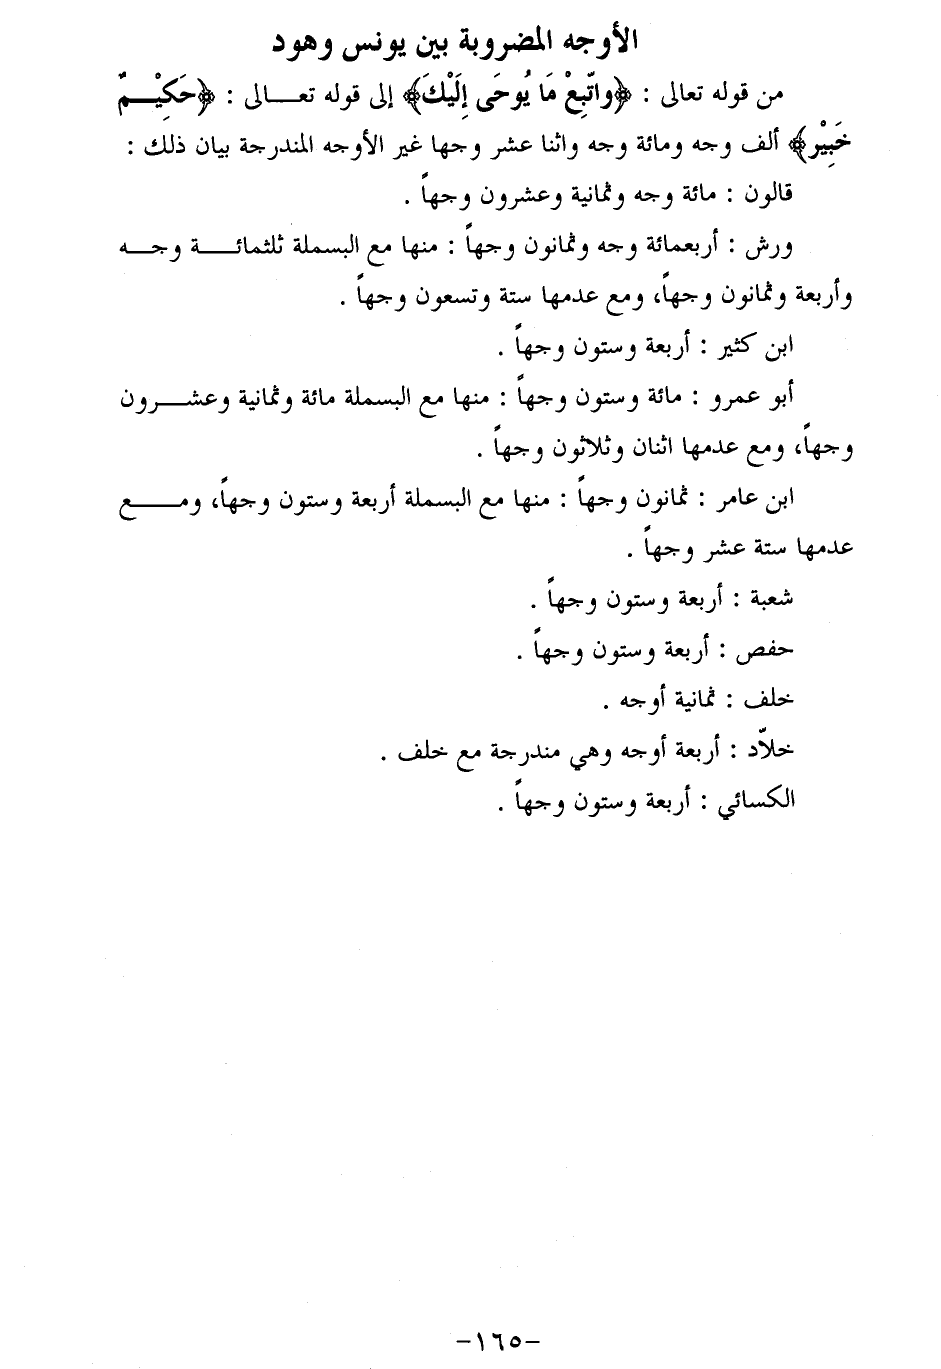 الأوجه المضروبة بين يونس وهود
من قوله تعالى : ﴿واتّبِعْ مَا يُوحَى إِلَيْكَ﴾ إلى قوله تعـــالى : ﴿حَكِيْـــمٌ
خَبِيْرٍ﴾ ألف وجه ومائة وجه واثنا عشر وجها غير الأوجه المندرجة بيان ذلك :
قالون : مائة وجه وثمانية وعشرون وجهاً .
ورش : أربعمائة وجه وثمانون وجهاً : منها مع البسملة ثلثمائـــة وجـــه
وأربعة وثمانون وجهاً، ومع عدمها ستة وتسعون وجهاً .
ابن كثير : أربعة وستون وجهاً .
أبو عمرو : مائة وستون وجهاً : منها مع البسملة مائة وثمانية وعشـــرون
وجهاً، ومع عدمها اثنان وثلاثون وجهاً .
ابن عامر : ثمانون وجهاً : منها مع البسملة أربعة وستون وجهاً، ومـــع
عدمها ستة عشر وجهاً .
شعبة : أربعة وستون وجهاً .
حفص : أربعة وستون وجهاً .
خلف : ثمانية أوجه .
خلاّد : أربعة أوجه وهي مندرجة مع خلف .
الكسائي : أربعة وستون وجهاً .
-١٦٥-